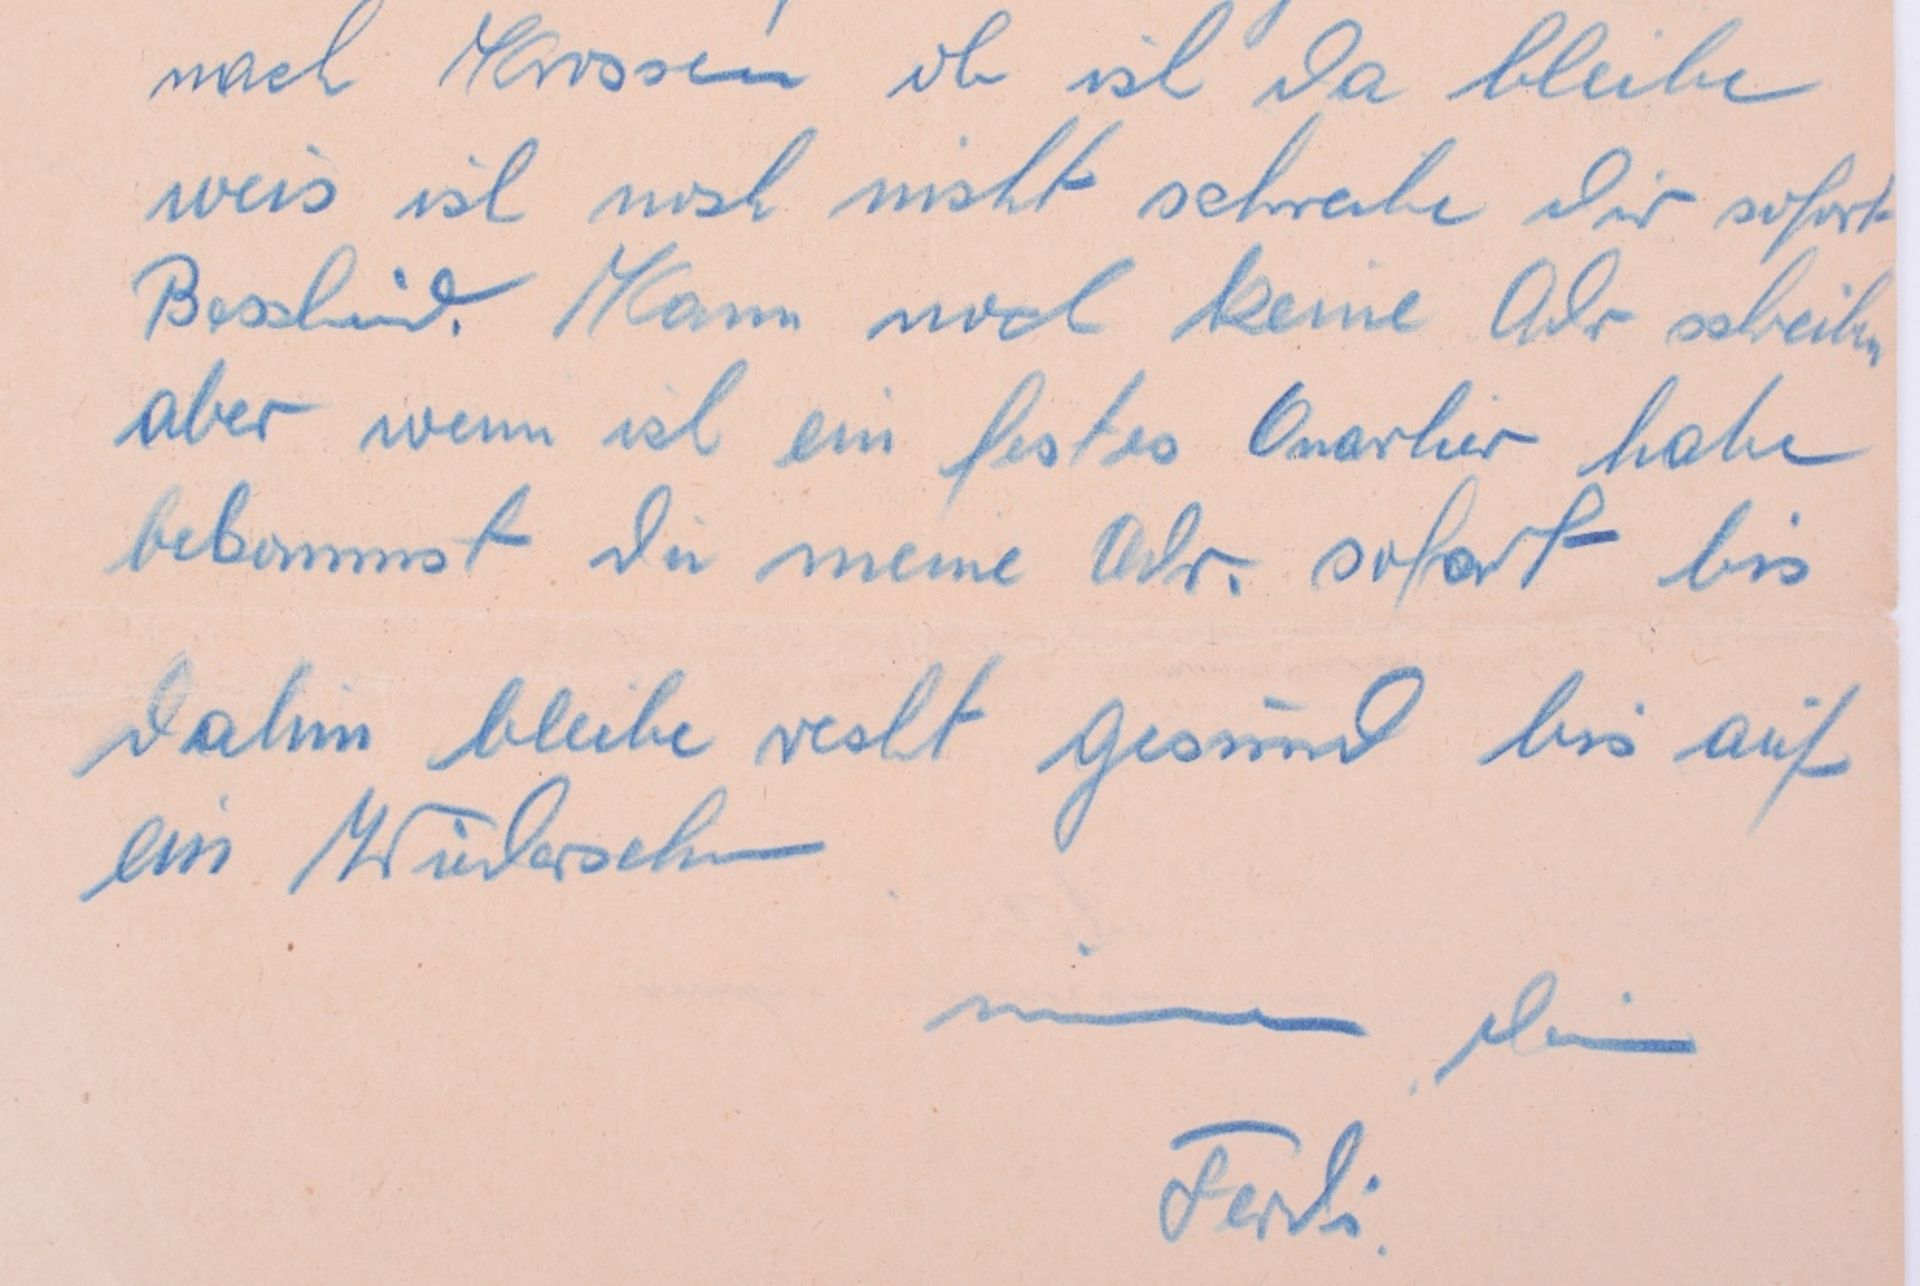 nach Krossen ob ich da bleibe
weis ich noch nicht schreibe dir sofort
Bescheid. Kann noch keine Adr schreiben
aber wenn ich ein festes Quartier habe
bekommst du meine Adr. sofort bis
dahin bleibe recht gesund bis auf
ein Wiedersehn
Dein
Ferdi.